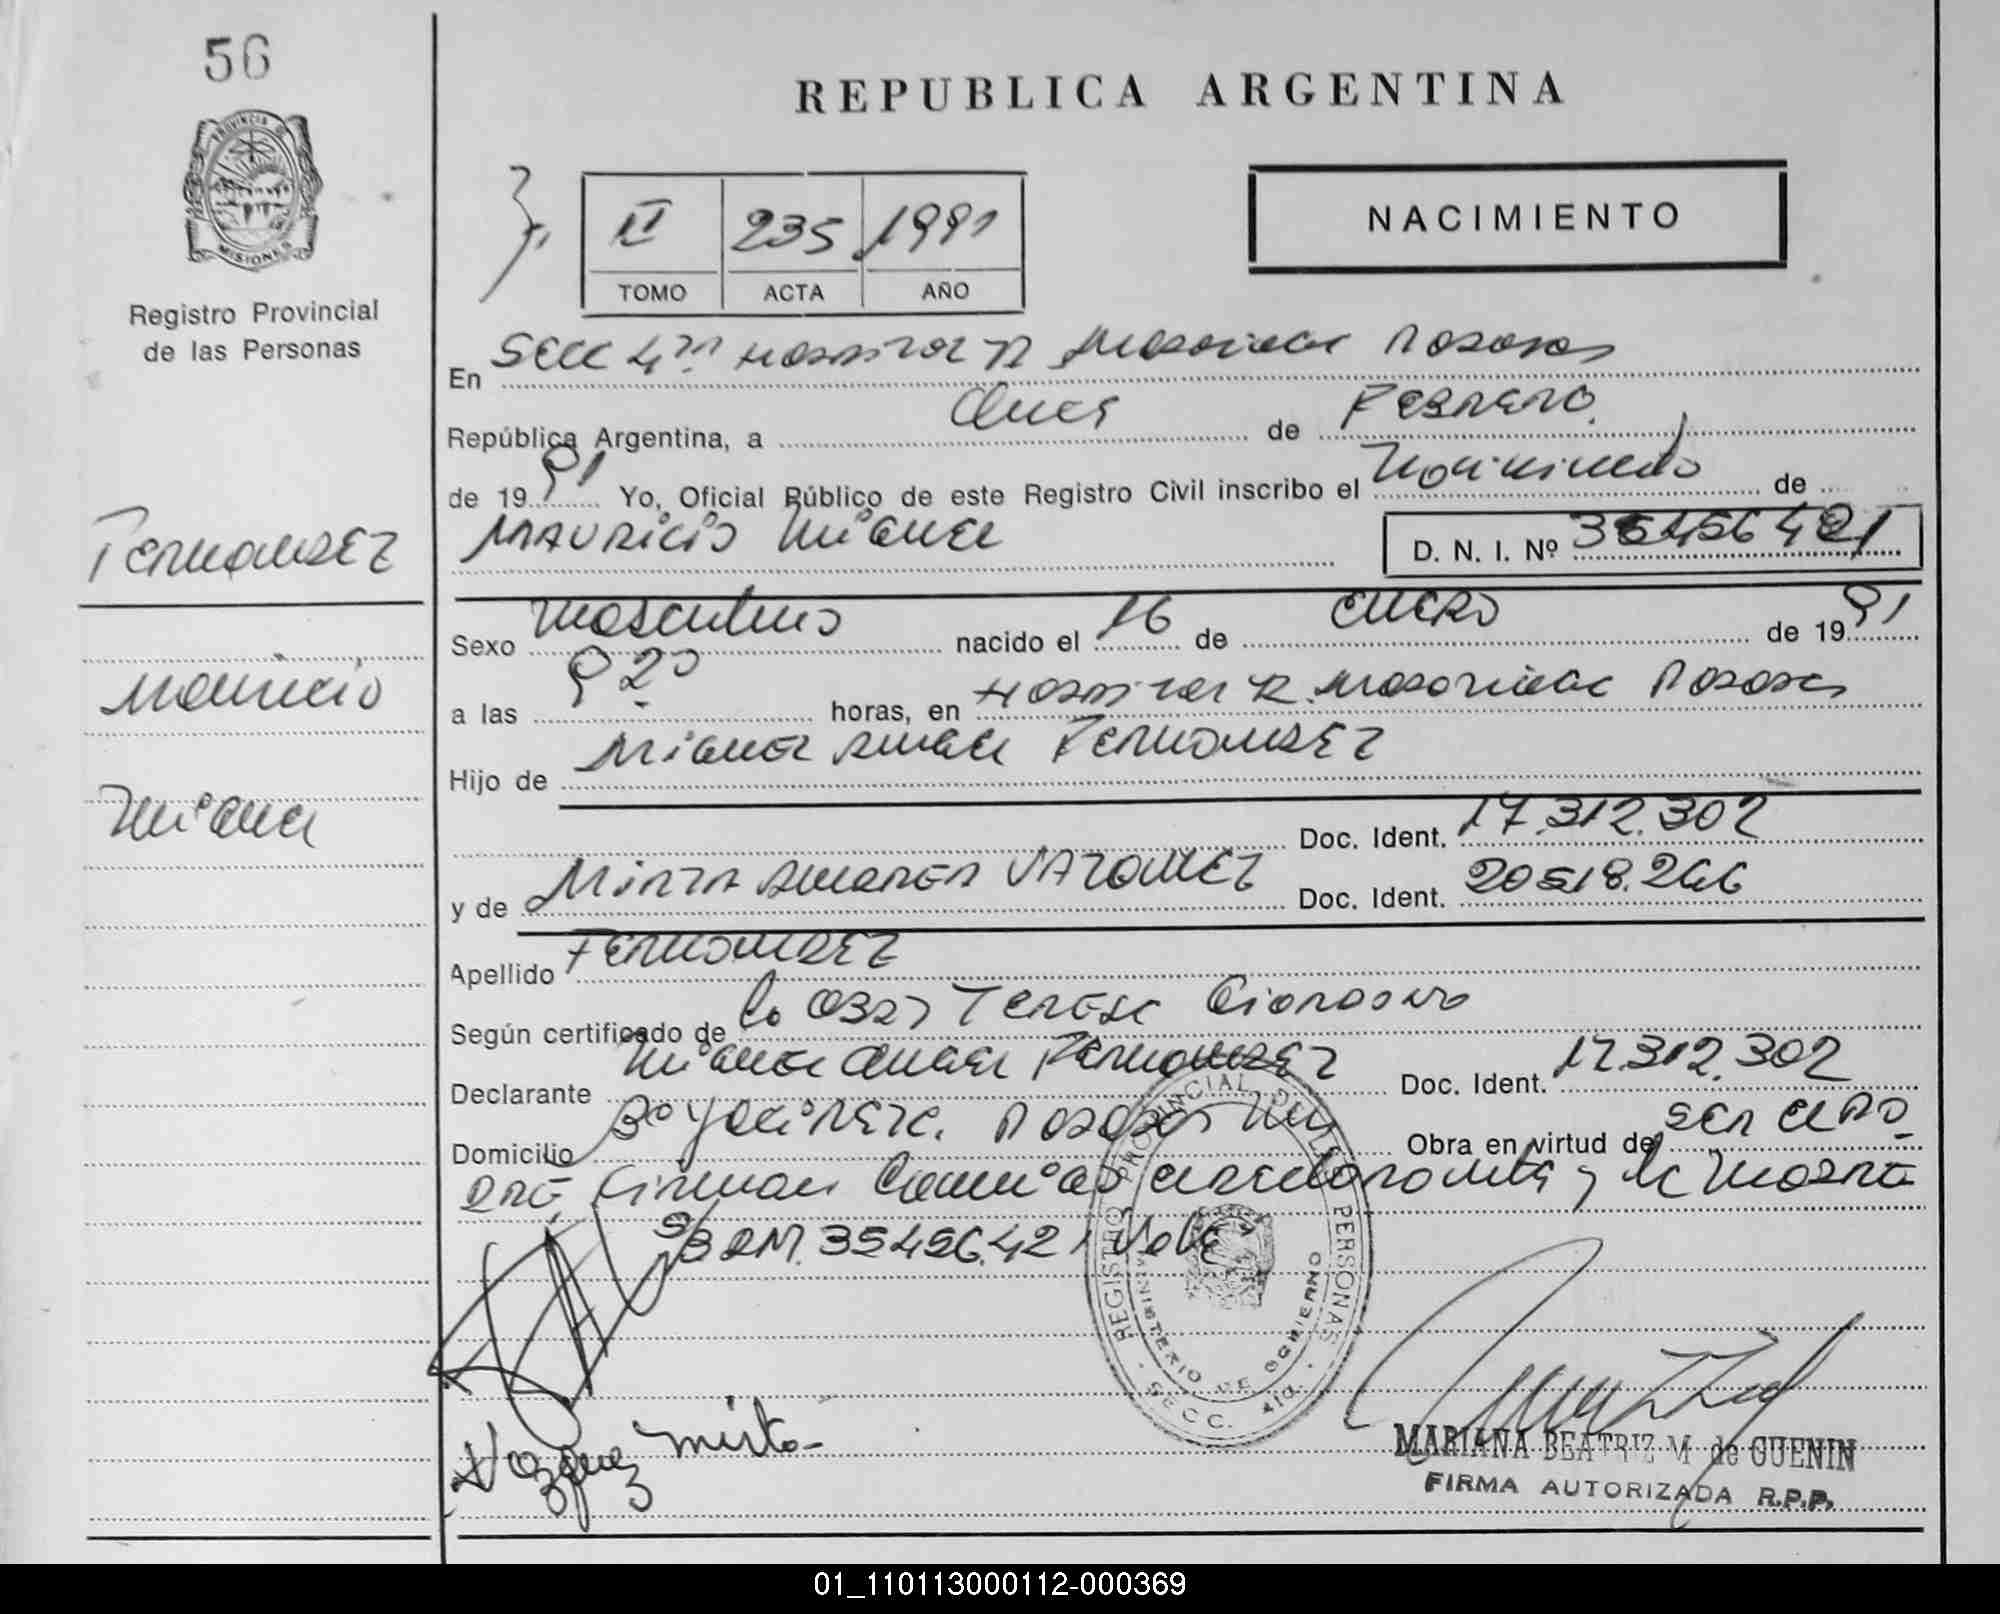 56
REPUBLICA ARGENTINA
PROVINCIA DE
MISIONES
Registro Provincial
de las Personas
II 235 1991
TOMO ACTA AÑO
NACIMIENTO
En SECC 4ta Hospital R Madariaga Posadas
República Argentina, a once de FEBRERO.
de 1991 Yo, Oficial Público de este Registro Civil inscribo el Nacimiento de
FERNANDEZ
MAURICIO MIGUEL D. N. I. Nº
Sexo masculino nacido el 16 de ENERO de 1991
Mauricio
a las 9 20 horas, en Hospital R. Madariaga Posadas
Miguel
Hijo de Miguel Angel FERNANDEZ
Doc. Ident. 17.312.302
y de Mirta VAZQUEZ Doc. Ident. 20518.266
Apellido FERNANDEZ
Según certificado de la Obst Teresa
Declarante Miguel Angel FERNANDEZ Doc. Ident. 17.312.302
Domicilio Bº Posadas Obra en virtud de SER EL PA
DRE, Firman el declarante y la MADRE
3545642 Vale
REGISTRO PROVINCIAL DE LAS PERSONAS
MINISTERIO DE GOBIERNO
SECC. 4ta.
Vazquez mirta
MARIANA BEATRIZ M de GUENIN
FIRMA AUTORIZADA R.P.P.
01_110113000112-000369